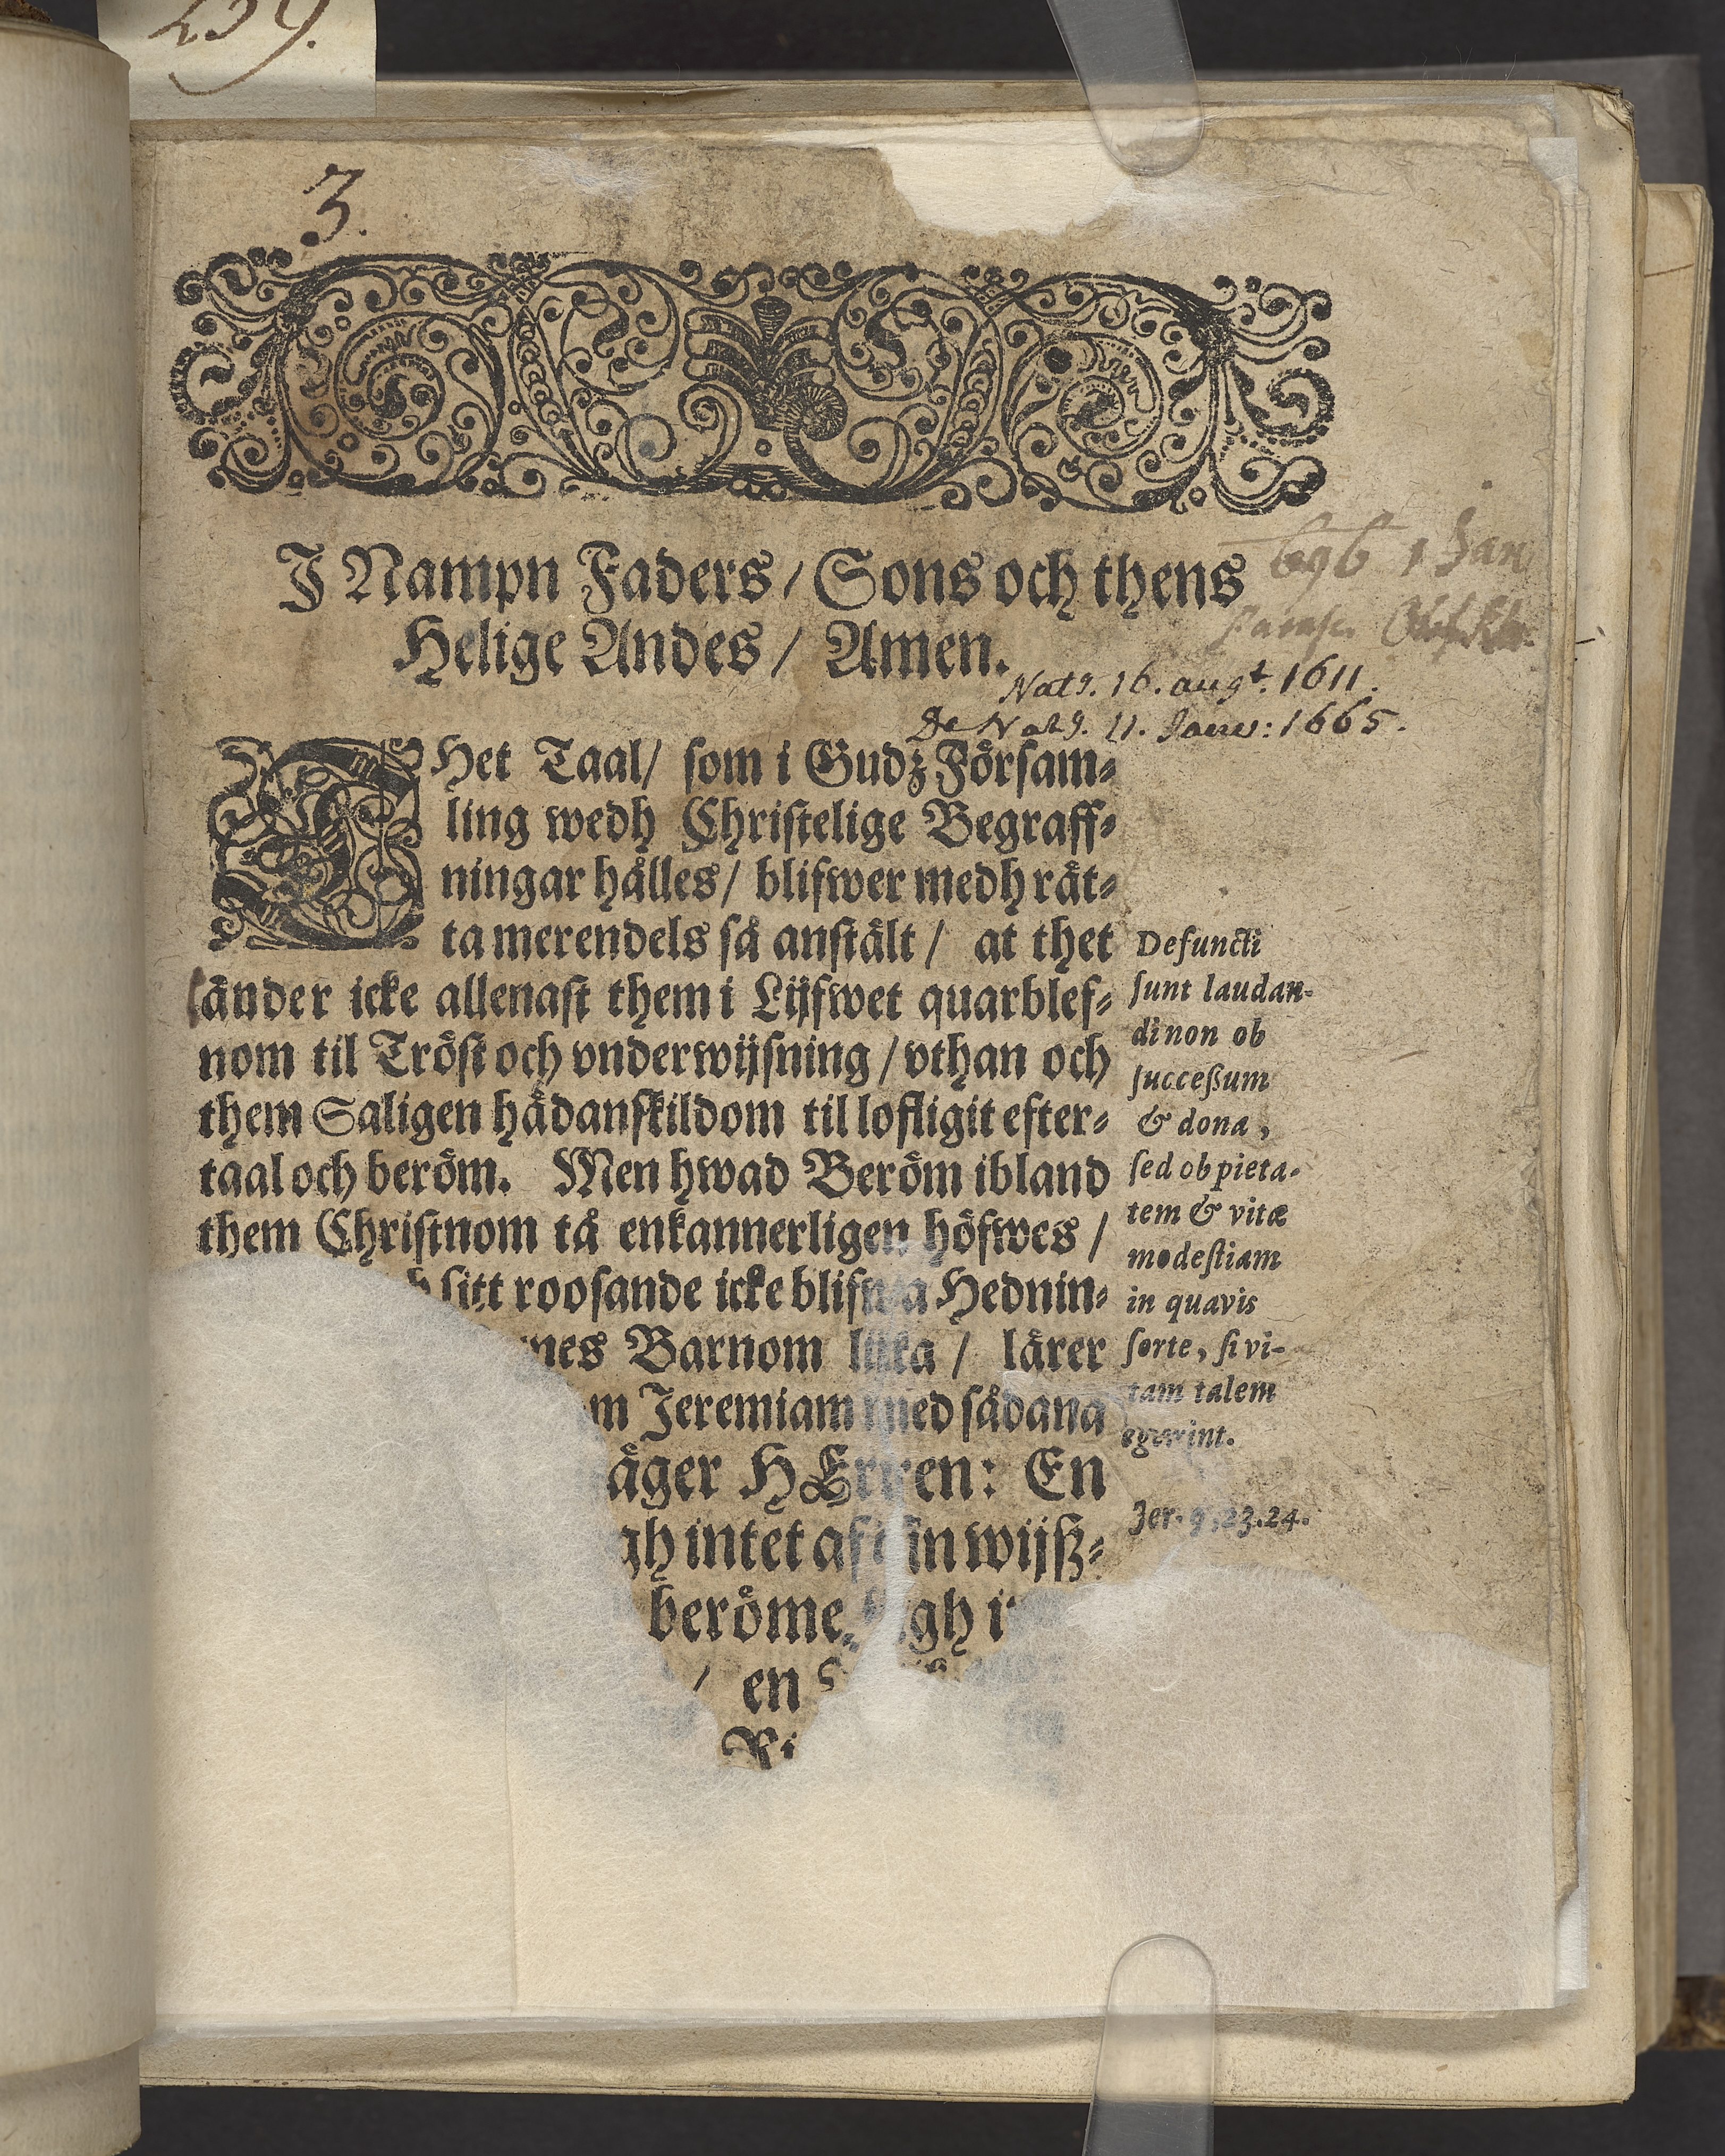 239.
3.
I Nampn Faders / Sons och thens
Helige Andes / Amen.
1 Jan
Nat9. 16. augt. 1611.
De Nat9. 11. Janu: 1665.
THet Taal / som i Gudz Försam⸗
ling wedh Christelige Begraff⸗
ningar hålles / blifwer medh rät⸗
ta merendels så anstält / at thet
länder icke allenast them i Lijfwet quarblef⸗
nom til Tröst och vnderwijsning / vthan och
them Saligen hädanskildom till lofligit efter⸗
taal och beröm. Men hwad Beröm ibland
them Christnom tå enkannerligen höfwes /
sitt roosande icke blifwa Hednin⸗
Barnom lijka / lärer
Jeremiam med sådana
säger HErren: En
intet aff sin wijß⸗
beröme sigh
/ en
Ri
Defuncti
sunt laudan-
di non ob
succeßum
& dona,
sed ob pieta-
tem & vitæ
modestiam
in quavis
sorte, si vi-
tam talem
egerint.
Jer. 9, 23. 24.